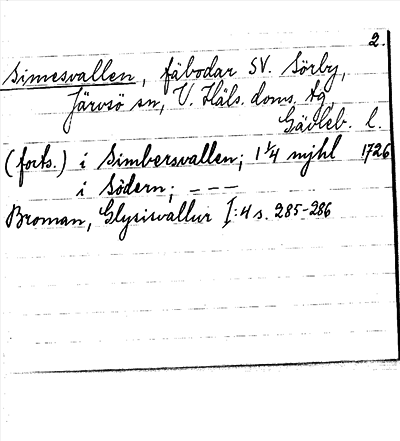 2.
Simesvallen, fäbodar SV. Sörby,
Järvsö sn, V. Häls. doms. tg,
Gävleb. l.
(forts.) i Simbersvallen; 1 1/4 mjhl 1726
i Södern; ---
Broman, Glysisvallur I:4 s. 285-286